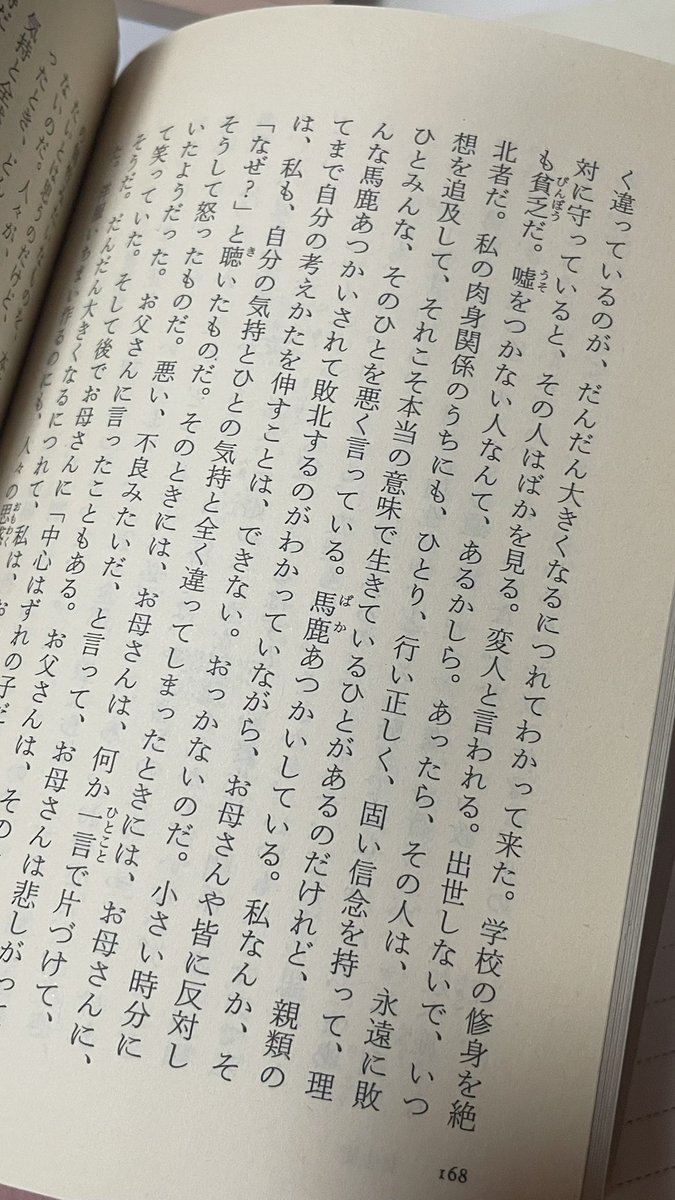 く違っているのが、だんだん大きくなるにつれてわかって来た。学校の修身を絶
対に守っていると、その人はばかを見る。変人と言われる。出世しないで、いつ
も貧乏だ。嘘をつかない人なんて、あるかしら。あったら、その人は、永遠に敗
北者だ。私の肉身関係のうちにも、ひとり、行い正しく、固い信念を持って、理
想を追及して、それこそ本当の意味で生きているひとがあるのだけれど、親類の
ひとみんな、そのひとを悪く言っている。馬鹿あつかいしている。私なんか、そ
んな馬鹿あつかいされて敗北するのがわかっていながら、お母さんや皆に反対し
てまで自分の考えかたを伸すことは、できない。おっかないのだ。小さい時分に
は、私も、自分の気持とひとの気持と全く違ってしまったときには、お母さんに、
「なぜ？」と聴いたものだ。そのときには、お母さんは、何か一言で片づけて、
そうして怒ったものだ。悪い、不良みたいだ、と言って、お母さんは悲しがって
いたようだった。お父さんに言ったこともある。お父さんは、その
て笑っていた。そして後でお母さんに「中心はずれの子だ
そうだ。だんだん大きくなるにつれて、私は、お
た。洋服いちまい作るのにも、人々の思惑
168
気持と全
ったとき、どん
ないのだ。人々が、